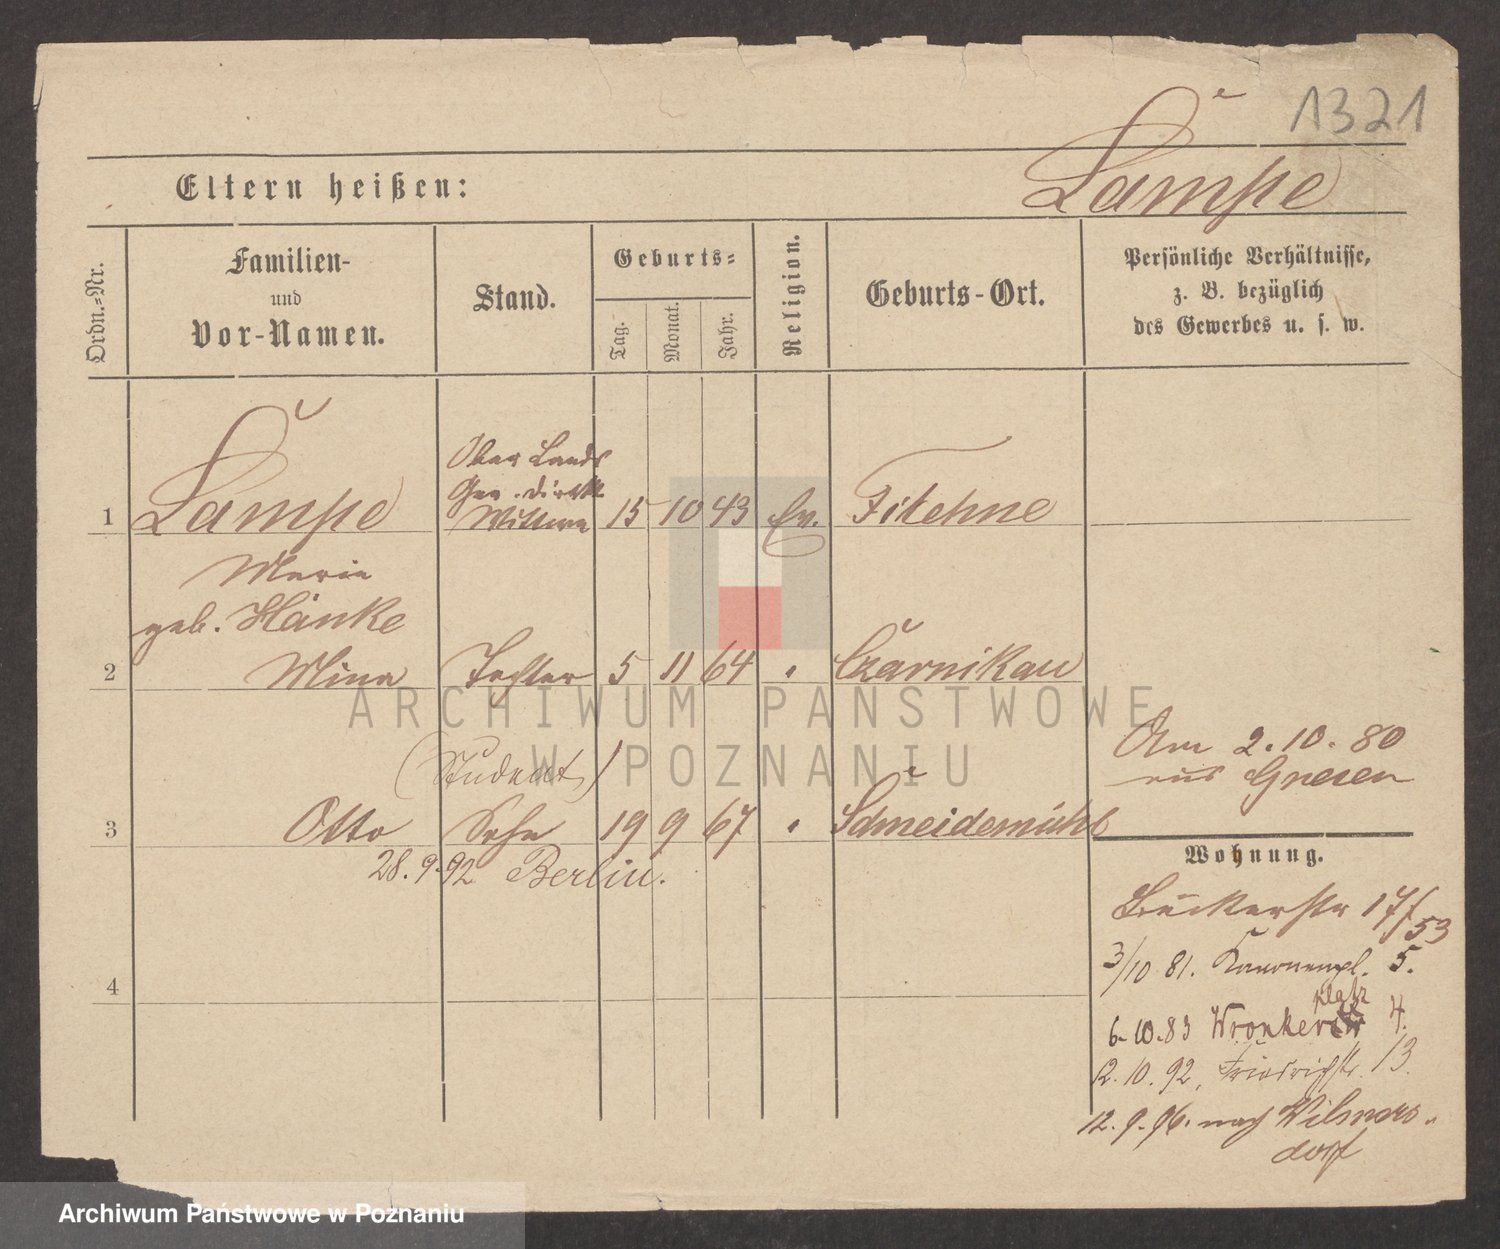 1321
Lampe
Eltern heißen:
Ordn.=Nr.
Familien-
und
Vor-Namen.
Stand.
Geburts=
Tag.
Monat.
Jahr.
Religion.
Geburts-Ort.
Persönliche Verhältnisse,
z. B. bezüglich
des Gewerbes u. s. w.
Ober Lands
Ger. Direkt
1 Lampe Wittwe 15 10 43 Ev. Filehne
Marie
geb. Hänke
2 Mina Tochter 5 11 64 " Czarnikau
Am 2.10.80
aus Gnesen
(Student)
3 Otto Sohn 19 9 67 " Schneidemühl
28.9.92 Berlin.
Wohnung.
Bäckerstr 17/
53
3/10 81. Kanonenpl. 5.
platz
6.10.83 Wronkerstr 4.
12.10.92, Friedrichstr. 13.
4
12.9.96. nach Wilmers-
dorf
ARCHIWUM PAŃSTWOWE
W POZNANIU
Archiwum Państwowe w Poznaniu